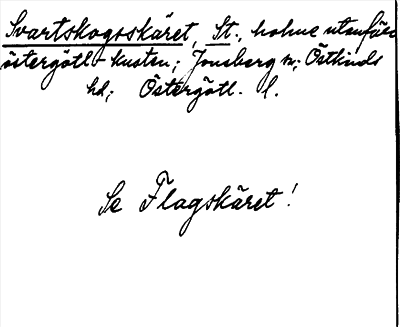 Svartskogsskäret, St., holme utanför
östergötl-kusten; Jonsberg sn; Östkinds
hd; Östergötl. l.
Se Flagskäret!